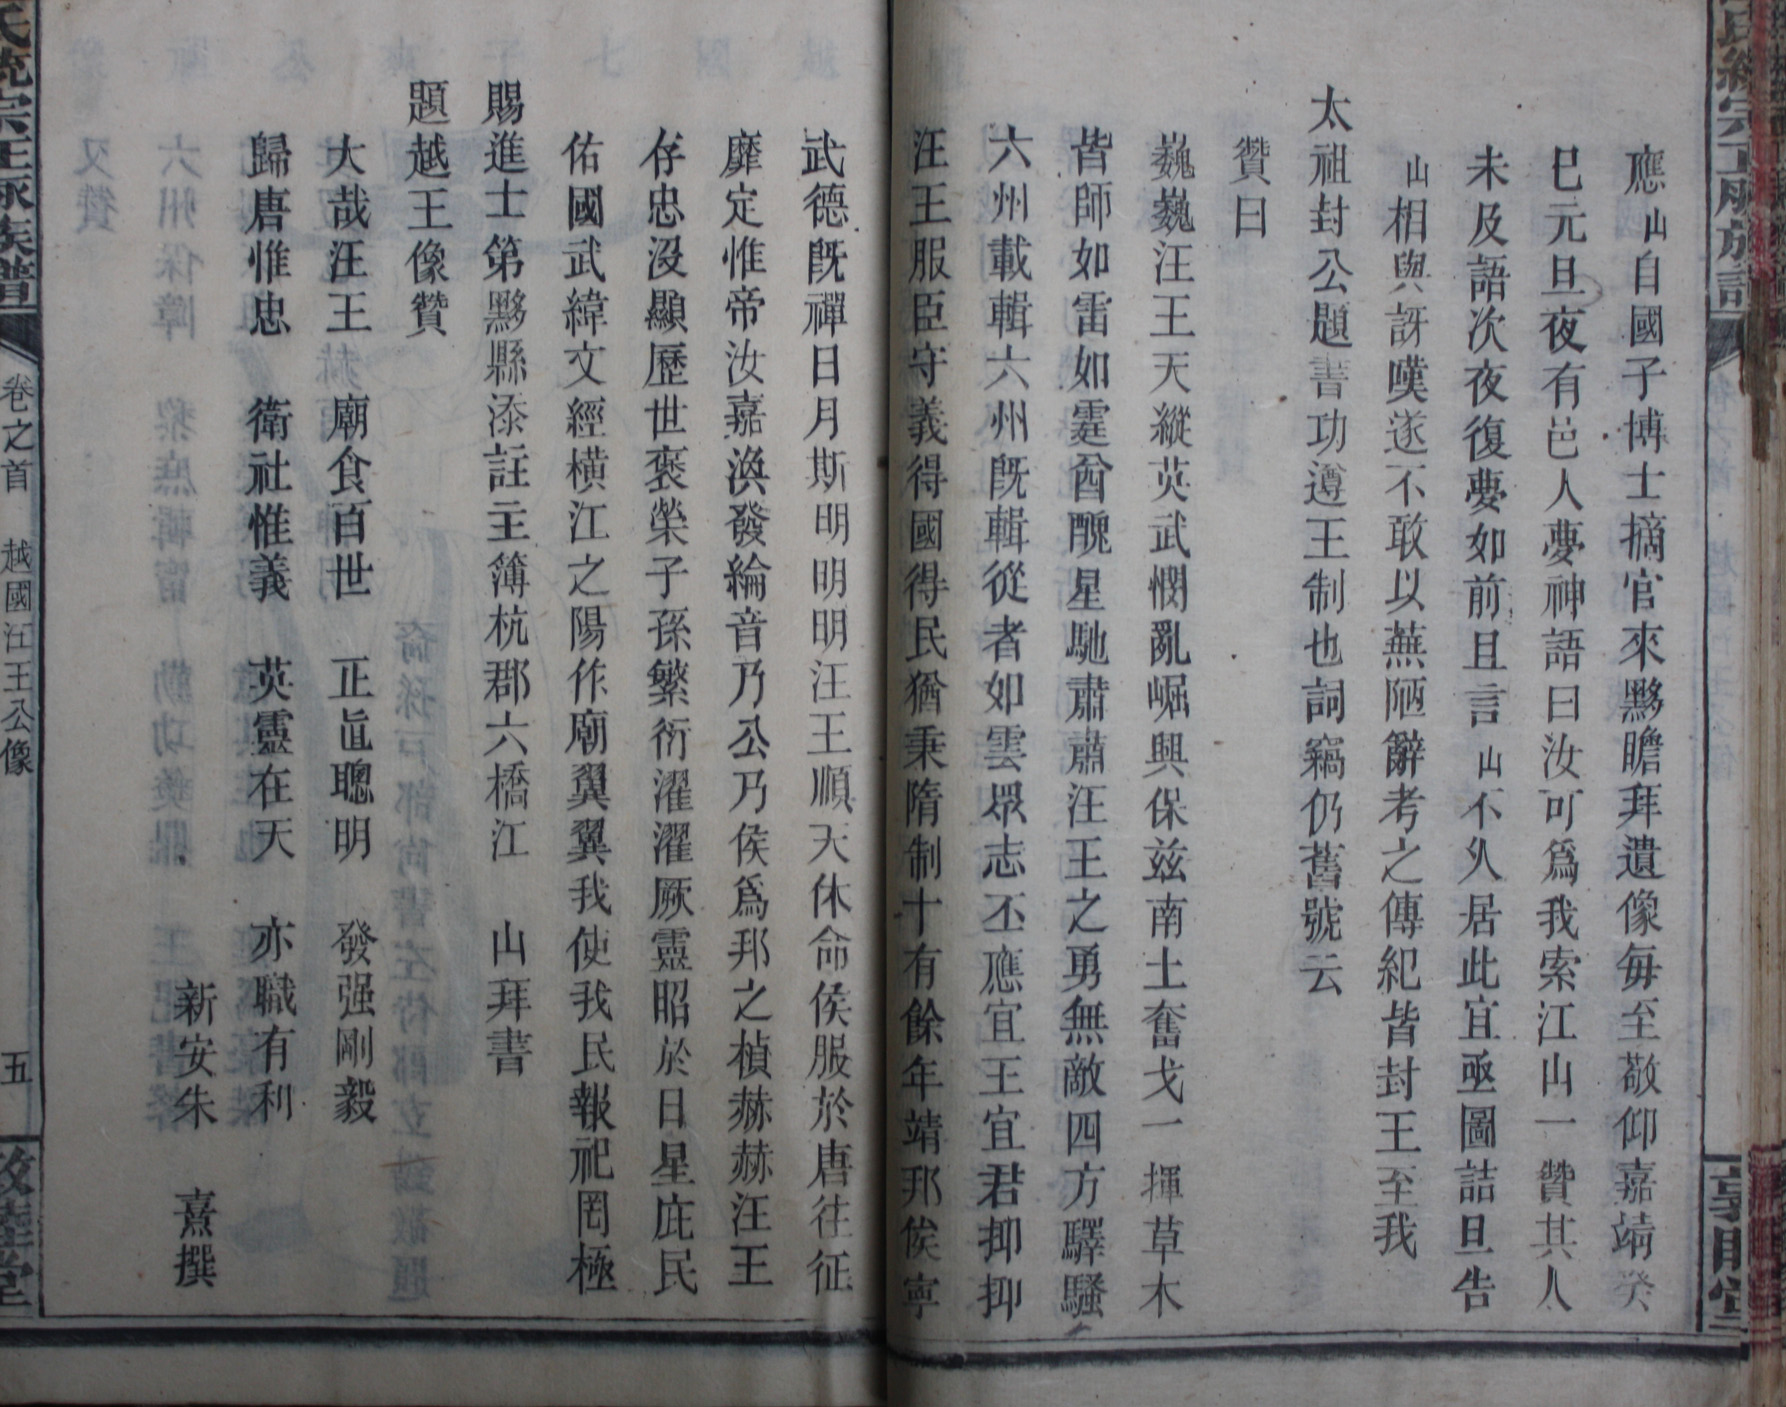 應山自國子博士摘官來黟瞻拜遺像每至敬仰嘉靖癸
巳元旦夜有邑人夢神語曰汝可為我索江山一贊其人
未及語次夜復夢如前且言山不久居此宜亟圖詰旦告
山相與訝嘆遂不敢以蕪陋辭考之傳紀皆封王至我
太祖封公題書功遵王制也詞竊仍舊號云
贊曰
巍巍汪王天縱英武憫亂崛興保茲南土奮戈一揮草木
皆師如雷如霆酋醜星馳肅肅汪王之勇無敵四方驛騷
六州載輯六州既輯從者如雲眾志丕應宜王宜君抑抑
汪王服臣守義得國得民猶秉隋制十有餘年靖邦俟寧
武德既禪日月斯明明明汪王順天休命侯服於唐往征
靡定惟帝汝嘉渙發綸音乃公乃侯為邦之楨赫赫汪王
存忠沒顯歷世褒榮子孫繁衍濯濯厥靈昭於日星庇民
佑國武緯文經橫江之陽作廟翼翼我使我民報祀罔極
賜進士第黟縣添註主簿杭郡六橋江 山拜書
題越王像贊
大哉汪王 廟食百世 正眞聰明 發强剛毅
歸唐惟忠 衛社惟義 英靈在天 亦職有利
新安朱 熹撰
卷之首 越國汪王公像 五